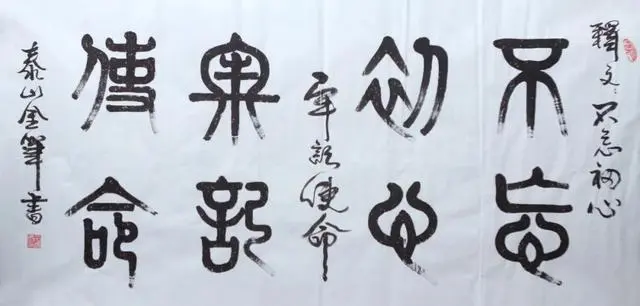 釋文:不忘初心
不忘
初心
牢記使命
牢記
使命
泰山金筆書